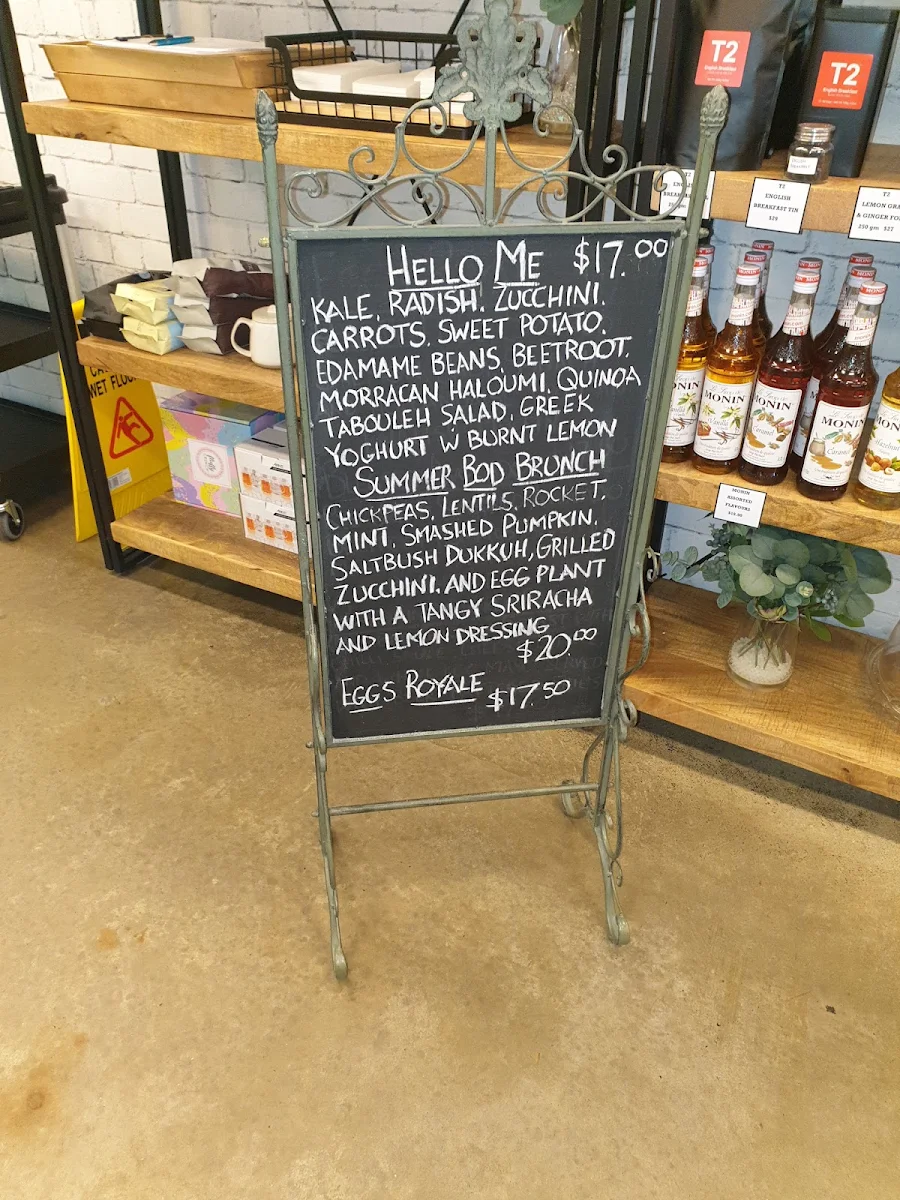 T2
English Breakfast
T2
English Breakfast
T2
ENGLISH
BREAKFAST TIN
$29
T2
LEMON GRA
& GINGER FO
250 gm $27
HELLO ME $17.00
KALE, RADISH, ZUCCHINI,
CARROTS, SWEET POTATO,
EDAMAME BEANS, BEETROOT,
MORRACAN HALOUMI, QUINOA
TABOULEH SALAD, GREEK
YOGHURT W BURNT LEMON
SUMMER BOD BRUNCH
CHICKPEAS, LENTILS, ROCKET,
MINT, SMASHED PUMPKIN,
SALTBUSH DUKKUH, GRILLED
ZUCCHINI, AND EGG PLANT
WITH A TANGY SRIRACHA
AND LEMON DRESSING
$20.00
EGGS ROYALE $17.50
WET FLOO
MONIN
MONIN
Vanilla
MONIN
Caramel
MONIN
Caramel
Hazelnut
MONIN
ASSORTED
FLAVOURS